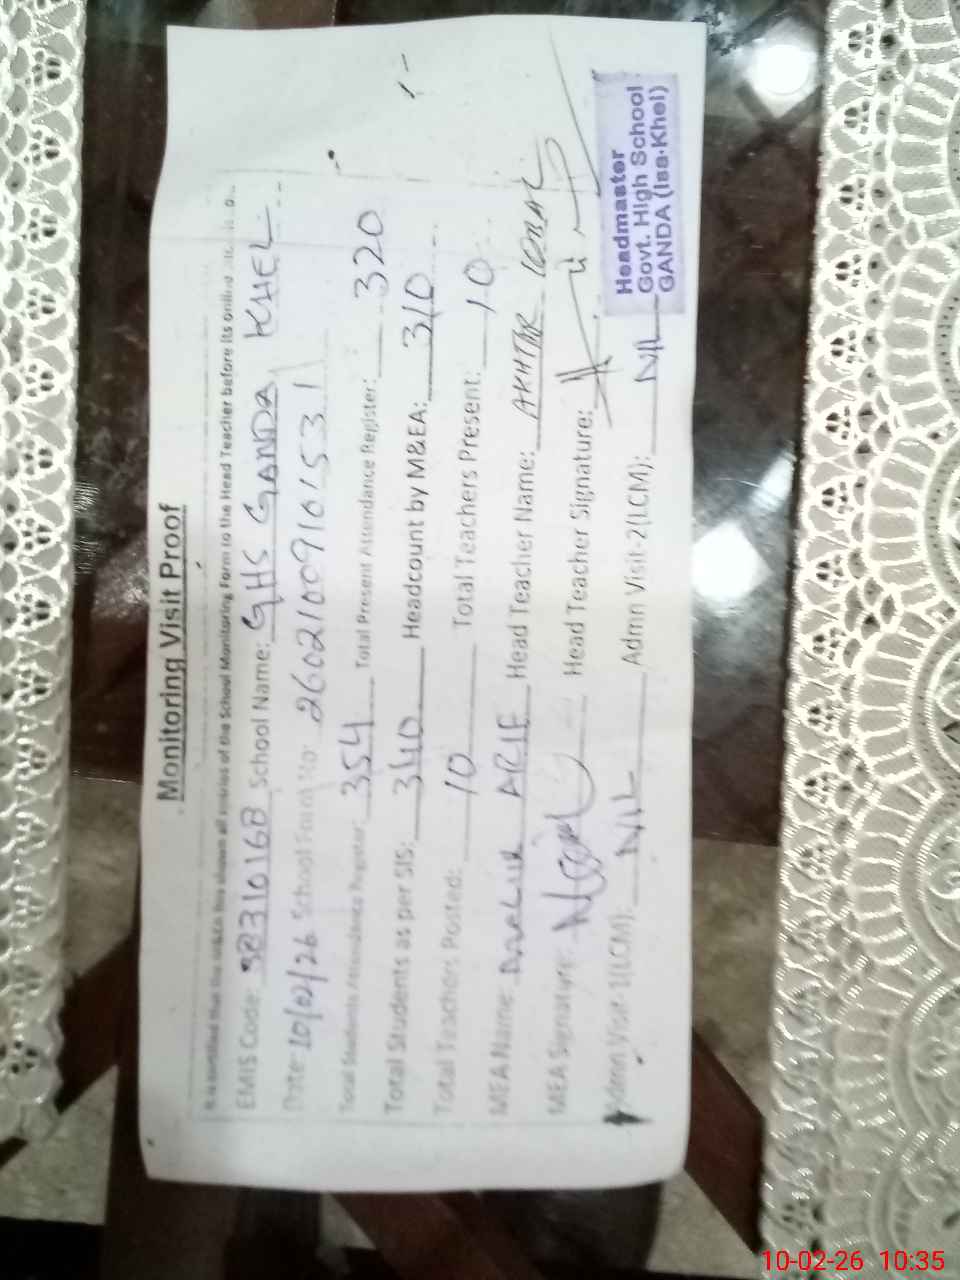 Monitoring Visit Proof
It is certified that the M&EA has shown all entries of the School Monitoring Form to the Head Teacher before its online
EMIS Code: 38310168 School Name: GHS GANDA KHEL
Date: 10/02/26 School Form No: 26021009101531
Total Students Attendance Register: 354 Total Present Attendance Register: 320
Total Students as per SIS: 340 Headcount by M&EA: 310
Total Teachers Posted: 10 Total Teachers Present: 10
MEA Name: ARIF Head Teacher Name: AKHTAR IQBAL
MEA Signature: Head Teacher Signature:
Admn Visit-1(LCM): NIL Admn Visit-2(LCM): NIL
Headmaster
Govt. High School
GANDA (Isa-Khel)
10-02-26 10:35